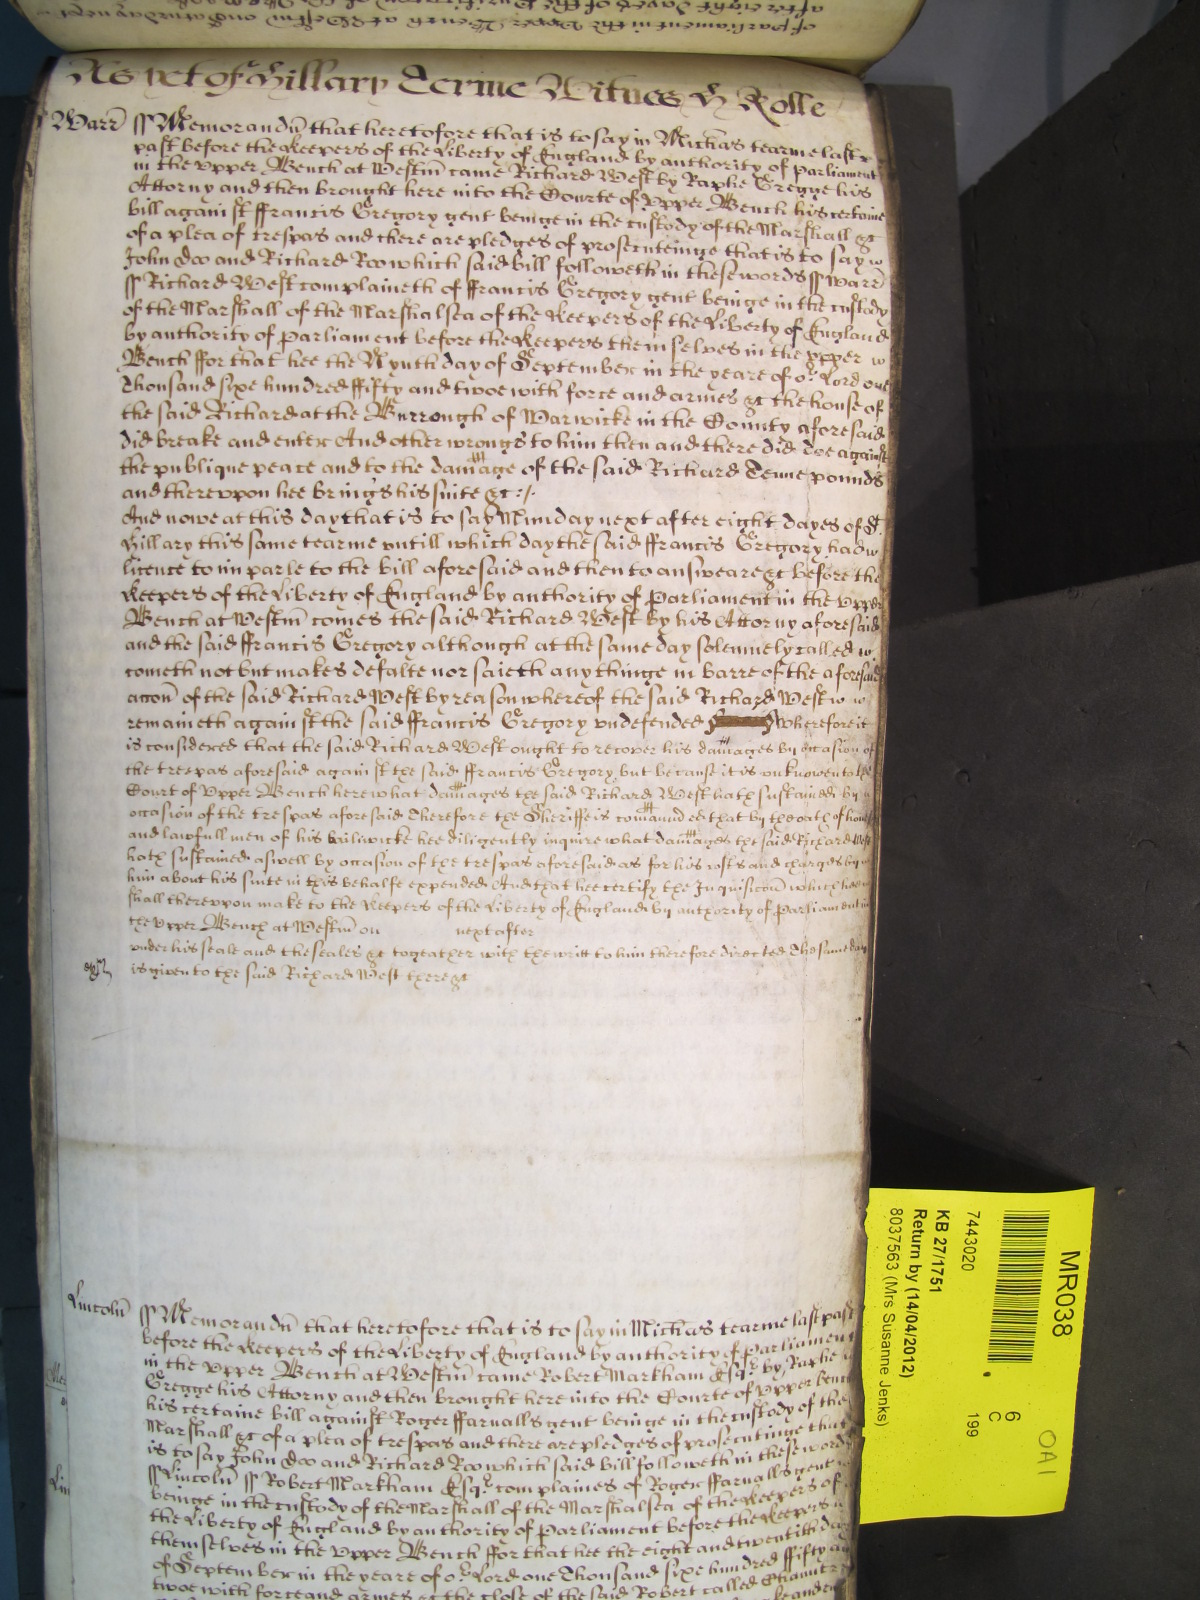 As yet of Hillary Terme Witnes H Rolle
Warr ss Memorandū that heretofore that is to say in Michās tearme last
past before the Keepers of the Liberty of England by authority of Parliament
in the Vpper Bench at Westm̄ came Richard West by Raphe Gregge his
Attorny and then brought here into the Courte of Vpper Bench his certaine
bill against ffrancis Gregory gent beinge in the custody of the Marshall &c
of a plea of trespas and there are pledges of prosecuteinge that is to say
John Doo and Richard Roo which said bill followeth in these words ss Warr
ss Richard West complaineth of ffrancis Gregory gent beinge in the custody
of the Marshall of the Marshalsea of the Keepers of the Liberty of England
by authority of Parliament before the Keepers themselves in the vpper
Bench ffor that hee the Nynth day of September in the yeare of or Lord one
Thousand sixe hundred ffifty and twoe with force and armes &c the house of
the said Richard at the Burrough of Warwicke in the County aforesaid
did breake and enter And other wrongs to him then and there did doe against
the publique peace and to the dammage of the said Richard Tenne pounds
and therevpon hee brings his suite &c
And nowe at this day that is to say Munday next after eight dayes of St
Hillary this same tearme vntill which day the said ffrancis Gregory had
licence to imparle to the bill aforesaid and then to answeare &c before the
Keepers of the Liberty of England by authority of Parliament in the Vpper
Bench at Westm̄ comes the said Richard West by his Attorny aforesaid
and the said ffrancis Gregory although at the same day solemnely called
cometh not but makes defalte nor saieth any thinge in barre of the aforesaid
accōn of the said Richard West by reason whereof the said Richard West
remaineth against the said ffrancis Gregory vndefended Wherefore it
is considered that the said Richard West ought to recover his dammages by occasion of
the trespas aforesaid against the said ffrancis Gregory but because it is vnknowen to the
Court of Vpper Bench here what dammages the said Richard West hath sustained by
occasion of the trespas aforesaid Therefore the Sheriffe is comaunded that by the oath of honest
and lawfull men of his bailiwicke hee diligently inquire what dammages the said Richard West
hath sustained aswell by occasion of the trespas aforesaid as for his costs and charges by
him about his suite in this behalfe expended And that hee certify the Inquisicōn which hee
shall therevpon make to the Keepers of the Liberty of England by authority of Parliament in
the Vpper Bench at Westm̄ on next after
vnder his seale and the seales &c togeather with the writt to him therefore directed The same day
is given to the said Richard West there &c
Lincoln̄ ss Memorandū that heretofore that is to say in Michās tearme last past
before the Keepers of the Liberty of England by authority of Parliament
in the Vpper Bench at Westm̄ came Robert Markham Esqr by Raphe
Gregge his Attorny and then brought here into the Courte of Vpper Bench
his certaine bill against Roger ffarnalls gent beinge in the custody of the
Marshall &c of a plea of trespas and there are pledges of prosecutinge that
is to say John Doo and Richard Roo which said bill followeth in these words
ss Lincoln̄ ss Robert Markham Esqr complaines of Roger ffarnalls gent
beinge in the custody of the Marshall of the Marshalsea of the Keepers of
the Liberty of England by authority of Parliament before the Keepers
themselves in the Vpper Bench ffor that hee the eight and twentith day
of September in the yeare of or Lord one Thousand sixe hundred ffifty and
twoe with force and armes &c the close of the said Robert called
MR038
7443020
KB 27/1751
Return by (14/04/2012)
8037563 (Mrs Susanne Jenks)
6
C
199
OA1